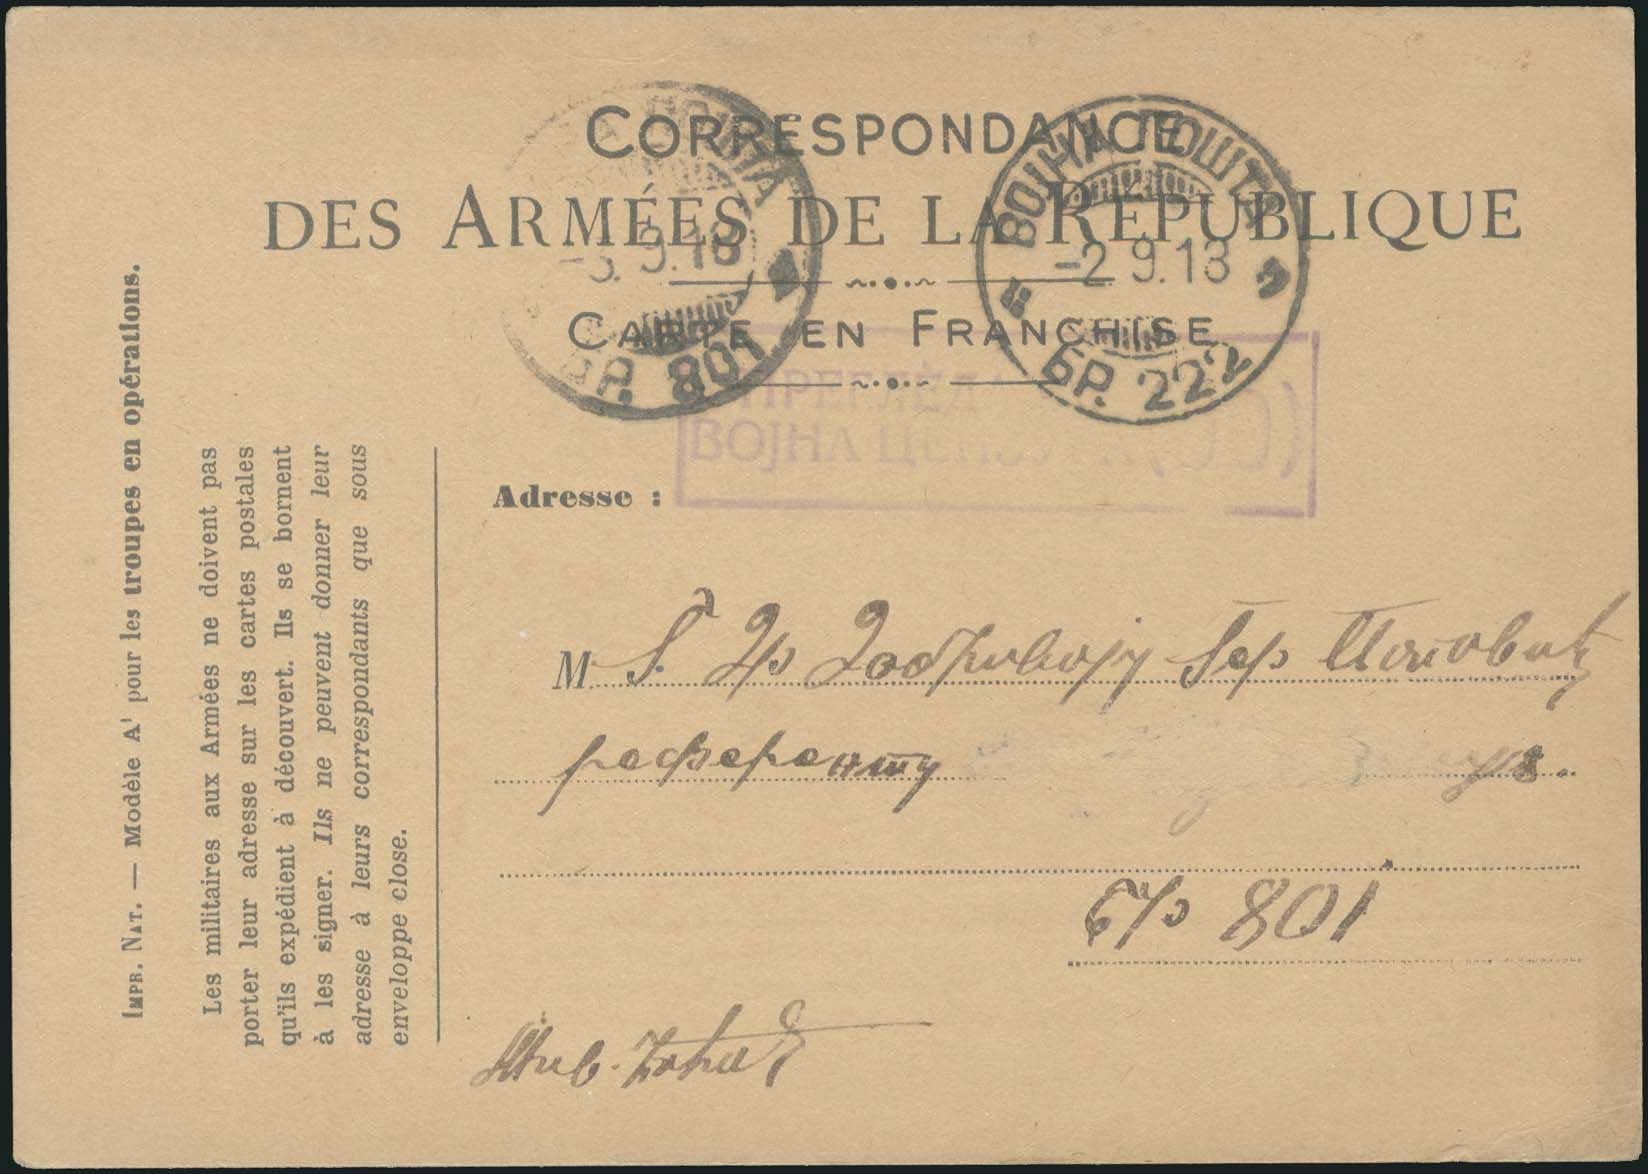 CORRESPONDANCE
DES ARMÉES DE LA RÉPUBLIQUE
CARTE EN FRANCHISE
ПОШТА
-3. 9.18
БР. 801
ВОЈНА ПОШТА
-2 9.18
БР. 222
ПРЕГЛЕД
ВОЈНА
Adresse :
M
референту
бр 801
Жив.
IMPR. NAT. — Modèle A¹ pour les troupes en opérations.
Les militaires aux Armées ne doivent pas
porter leur adresse sur les cartes postales
qu'ils expédient à découvert. Ils se bornent
à les signer. Ils ne peuvent donner leur
adresse à leurs correspondants que sous
enveloppe close.